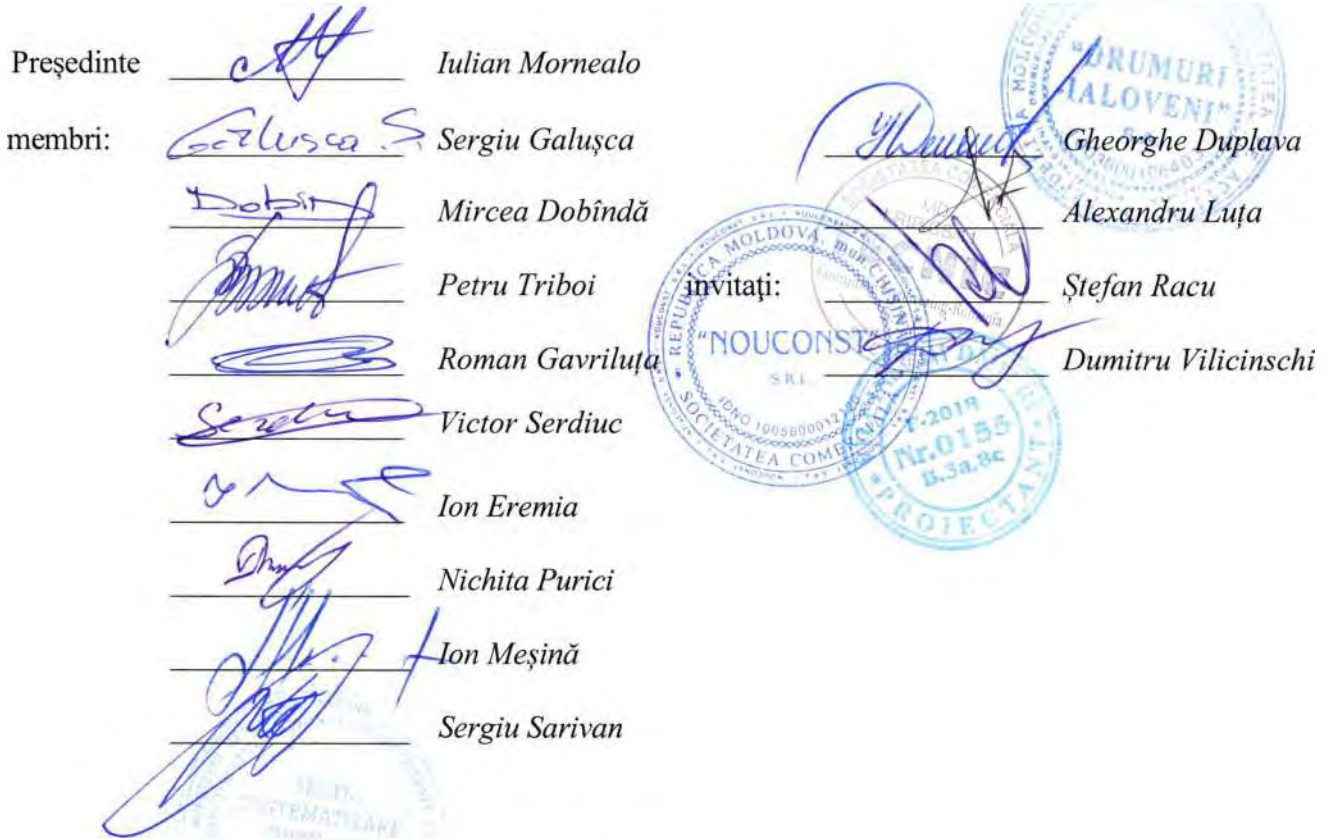 Președinte Iulian Mornealo
membri: Galusca S. Sergiu Galușca
Dobîn Mircea Dobîndă
Petru Triboi
Roman Gavriluța
Victor Serdiuc
Ion Eremia
Nichita Purici
Ion Meșină
Sergiu Sarivan
Gheorghe Duplava
Alexandru Luța
invitaţi: Ștefan Racu
Dumitru Vilicinschi
"DRUMURI
IALOVENI"
REPUBLICA MOLDOVA, mun CHIȘIN
"NOUCONST"
S.R.L.
SOCIETATEA COMERCIALĂ
2018
Nr.0155
B.5a,8c
PROIECTANT